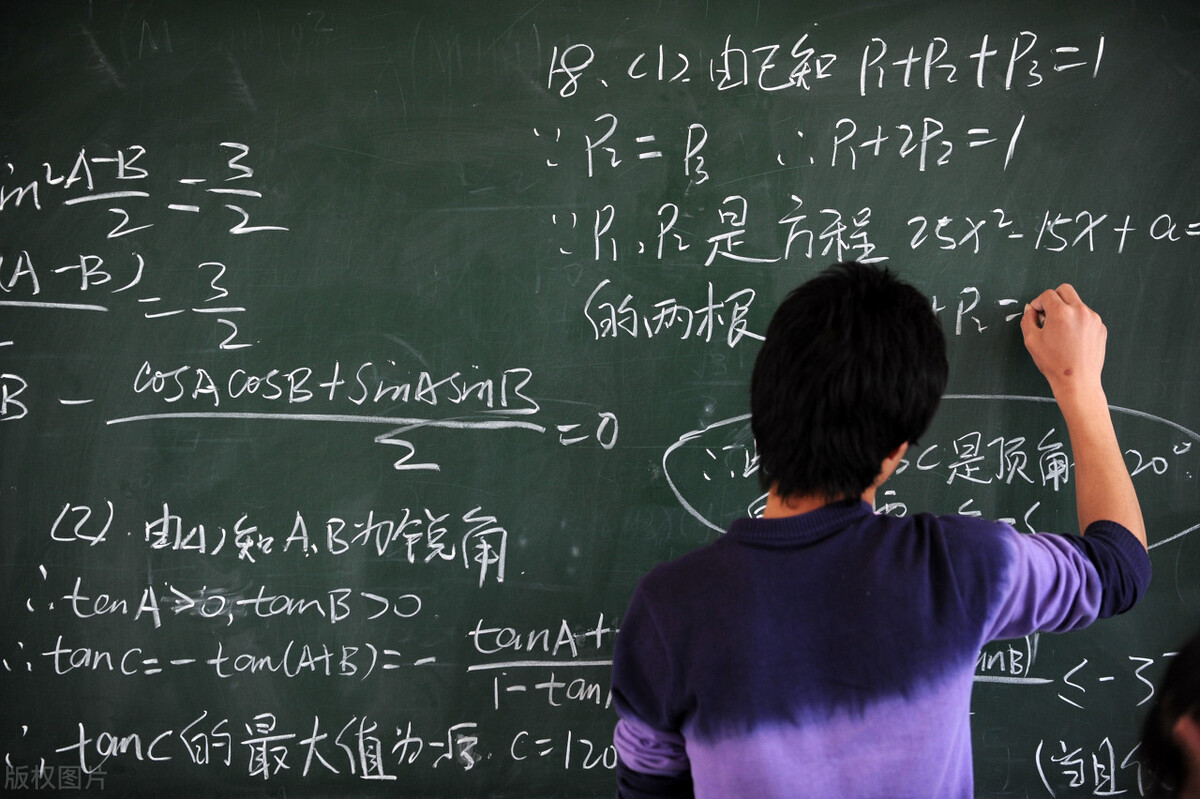 in²A-B/2 = 3/2
(A-B)/ = 3/2
B - cosAcosB+sinAsinB/2 = 0
(2).由(1)知A、B为锐角
∴tanA>0,tanB>0
∴tanC=-tan(A+B)=- tanA+ / 1-tan
inB) ≤-3
∴tanC的最大值为-√3 C=120
(当且
18、(1).由已知 P₁+P₂+P₃=1
∵P₂=P₃ ∴P₁+2P₂=1
∵P₁,P₂是方程 25x²-15x+a=
的两根 +P₂=
∴ C是顶角 120°
版权图片